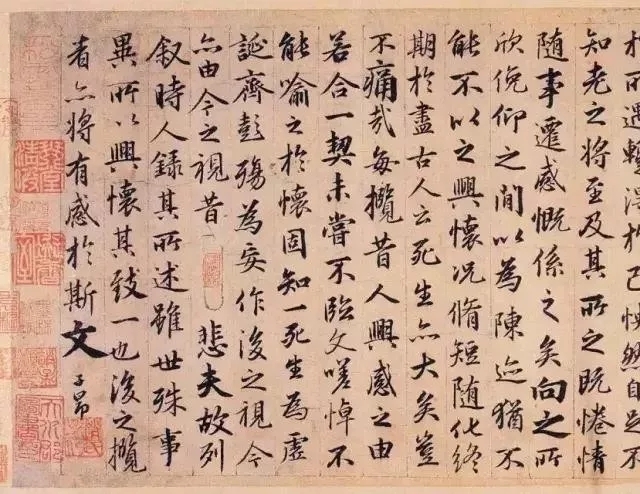 於所遇蹔得於己怏然自足不
知老之將至及其所之既惓情
隨事遷感慨係之矣向之所
欣俛仰之閒以為陳迹猶不
能不以之興懷況脩短随化終
期於盡古人云死生亦大矣豈
不痛哉每攬昔人興感之由
若合一契未嘗不臨文嗟悼不
能喻之於懷固知一死生為虛
誕齊彭殤為妄作後之視今
亦由今之視昔 悲夫故列
叙時人錄其所述雖世殊事
異所以興懷其致一也後之攬
者亦將有感於斯文 子昂